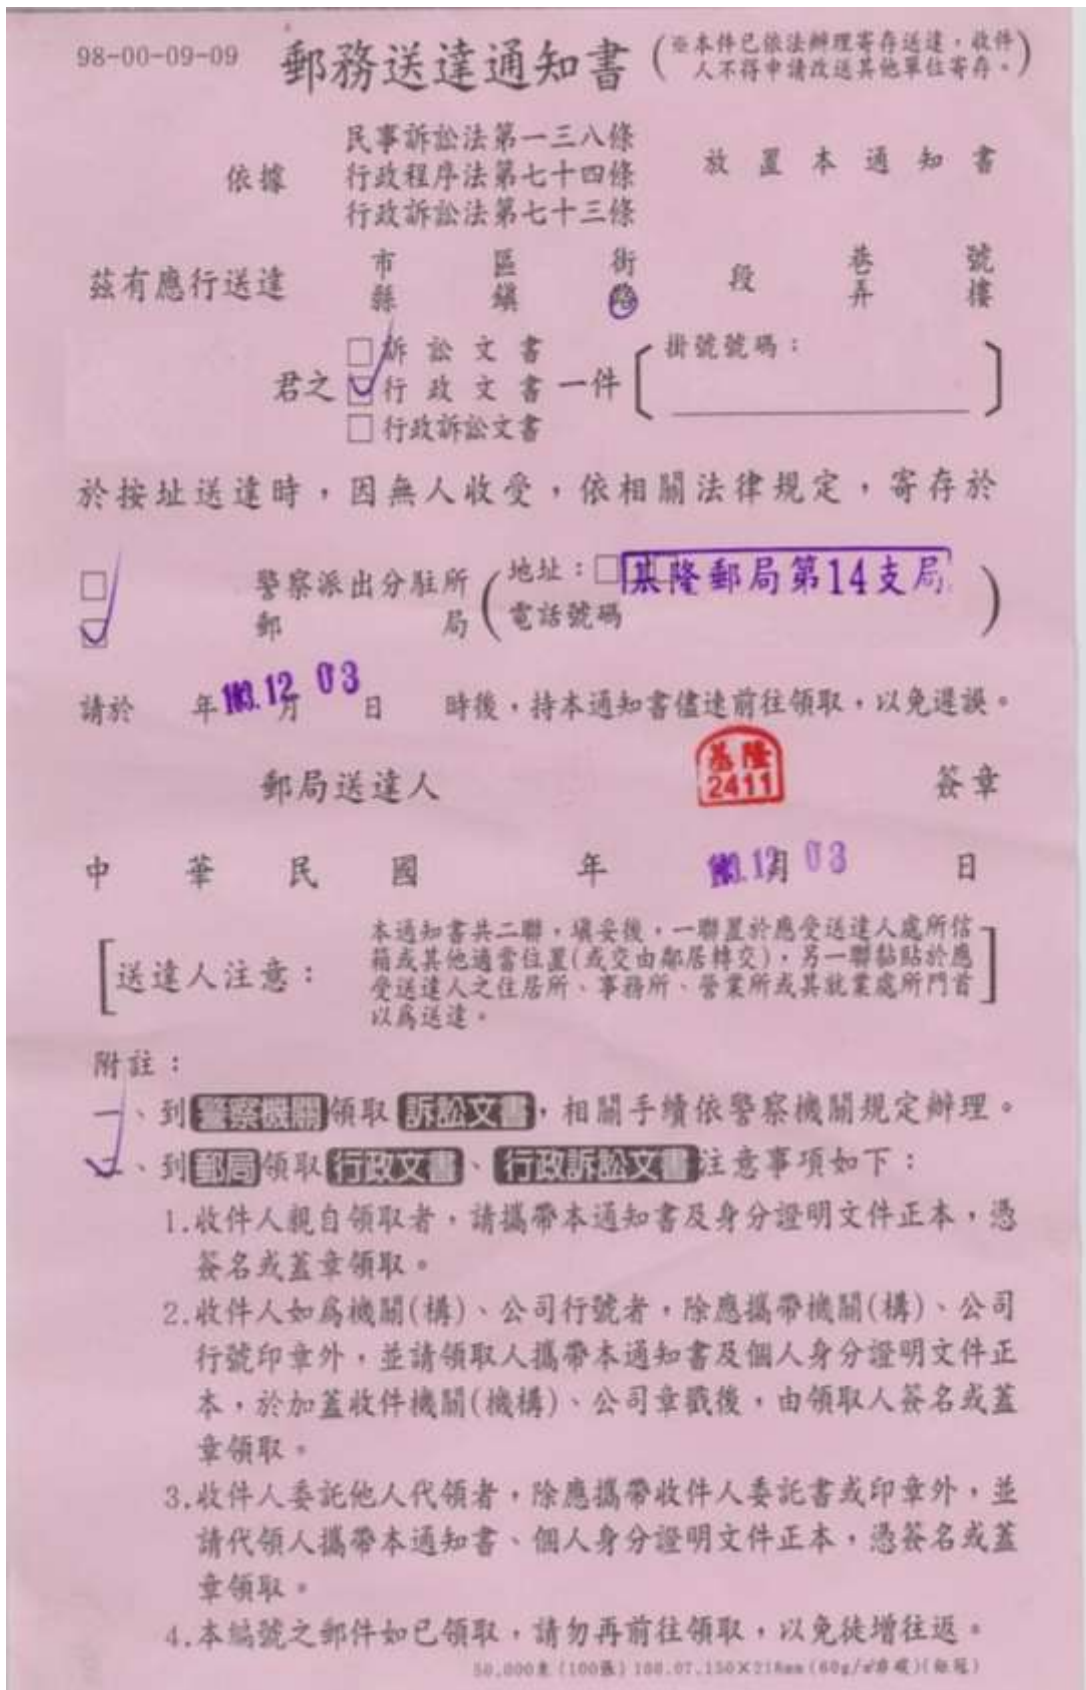 98-00-09-09 郵務送達通知書 (※本件已依法辦理寄存送達，收件
人不得申請改送其他單位寄存。)
民事訴訟法第一三八條
依據 行政程序法第七十四條 放置本通知書
行政訴訟法第七十三條
市 區 街 巷 號
茲有應行送達 段
縣 鎮 路 弄 樓
□訴訟文書 掛號號碼：
君之 □行政文書 一件
□行政訴訟文書
於按址送達時，因無人收受，依相關法律規定，寄存於
□ 警察派出分駐所 (地址：□基隆郵局第14支局)
□ 郵局 電話號碼
請於 年 103.12 月 03 日 時後，持本通知書儘速前往領取，以免遲誤。
基隆
2411
郵局送達人 簽章
中華民國 年 103.12 月 03 日
本通知書共二聯，填妥後，一聯置於應受送達人處所信
箱或其他適當位置(或交由鄰居轉交)，另一聯黏貼於應
[送達人注意：
受送達人之住居所、事務所、營業所或其就業處所門首]
以為送達。
附註：
一、到警察機關領取訴訟文書，相關手續依警察機關規定辦理。
二、到郵局領取行政文書、行政訴訟文書注意事項如下：
1.收件人親自領取者，請攜帶本通知書及身分證明文件正本，憑
簽名或蓋章領取。
2.收件人如為機關(構)、公司行號者，除應攜帶機關(構)、公司
行號印章外，並請領取人攜帶本通知書及個人身分證明文件正
本，於加蓋收件機關(機構)、公司章戳後，由領取人簽名或蓋
章領取。
3.收件人委託他人代領者，除應攜帶收件人委託書或印章外，並
請代領人攜帶本通知書、個人身分證明文件正本，憑簽名或蓋
章領取。
4.本編號之郵件如已領取，請勿再前往領取，以免徒增往返。
50,000束(100張)100.07.150×218mm(60g/㎡